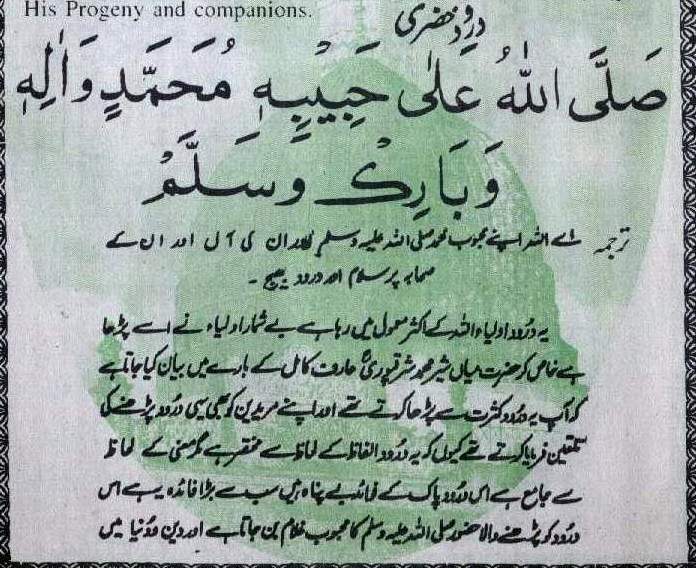 His Progeny and companions.
درود خضری
صَلَّى اللّٰهُ عَلٰى حَبِيْبِهٖ مُحَمَّدٍ وَاٰلِهٖ
وَبَارِكْ وَسَلَّمْ
ترجمہ اے اللہ اپنے محبوب محمد صلی اللہ علیہ وسلم اور ان کی آل اور ان کے
صحابہ پر سلام اور درود بھیج ۔
یہ درود اولیاء اللہ کے اکثر معمول میں رہا ہے بے شمار اولیاء نے اسے پڑھا
ہے خاص کر حضرت میاں شیر محمد شرقپوریؒ عارف کامل کے بارے میں بیان کیا جاتا ہے
کہ آپ یہ درود کثرت سے پڑھا کرتے تھے اور اپنے مریدین کو بھی یہی درود پڑھنے کی
تلقین فرمایا کرتے تھے کیوں کہ یہ درود الفاظ کے لحاظ سے مختصر ہے مگر معنی کے لحاظ
سے جامع ہے اس درود پاک کے فوائد بے پناہ ہیں سب سے بڑا فائدہ یہ ہے اس
درود کو پڑھنے والا حضور صلی اللہ علیہ وسلم کا محبوب غلام بن جاتا ہے اور دین و دنیا میں